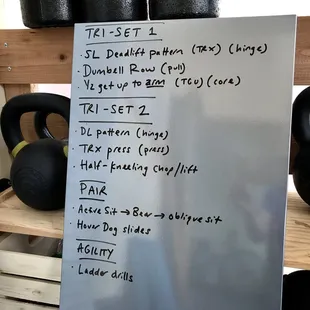 TRI-SET 1
· SL Deadlift pattern (TRX) (hinge)
· Dumbell Row (pull)
· 1/2 get up to arm (TGU) (core)
TRI-SET 2
· DL pattern (hinge)
· TRX press (press)
· Half-kneeling chop/lift
PAIR
· Active Sit → Bear → oblique sit
· Hover Dog slides
AGILITY
· Ladder drills